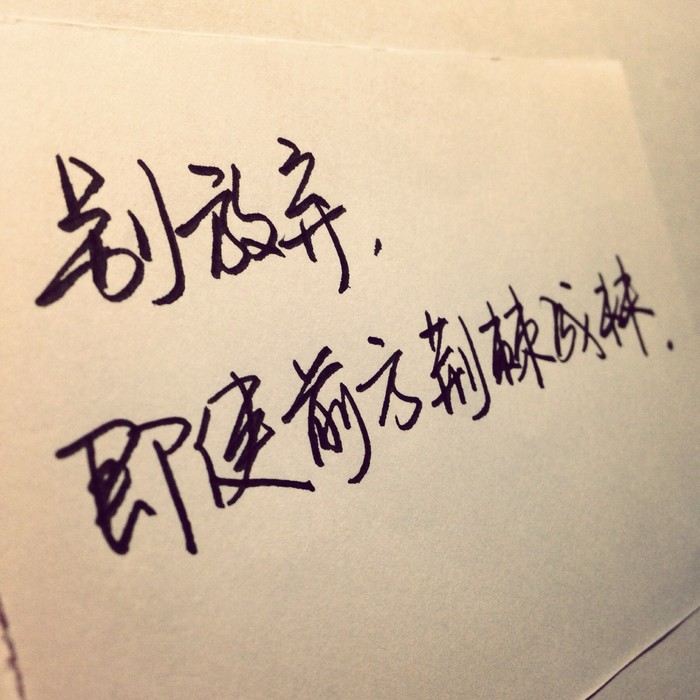 别放弃.
即使前方荆棘成林.